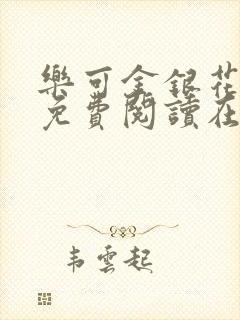 樂可金銀花
免費閱讀在
韋雲起